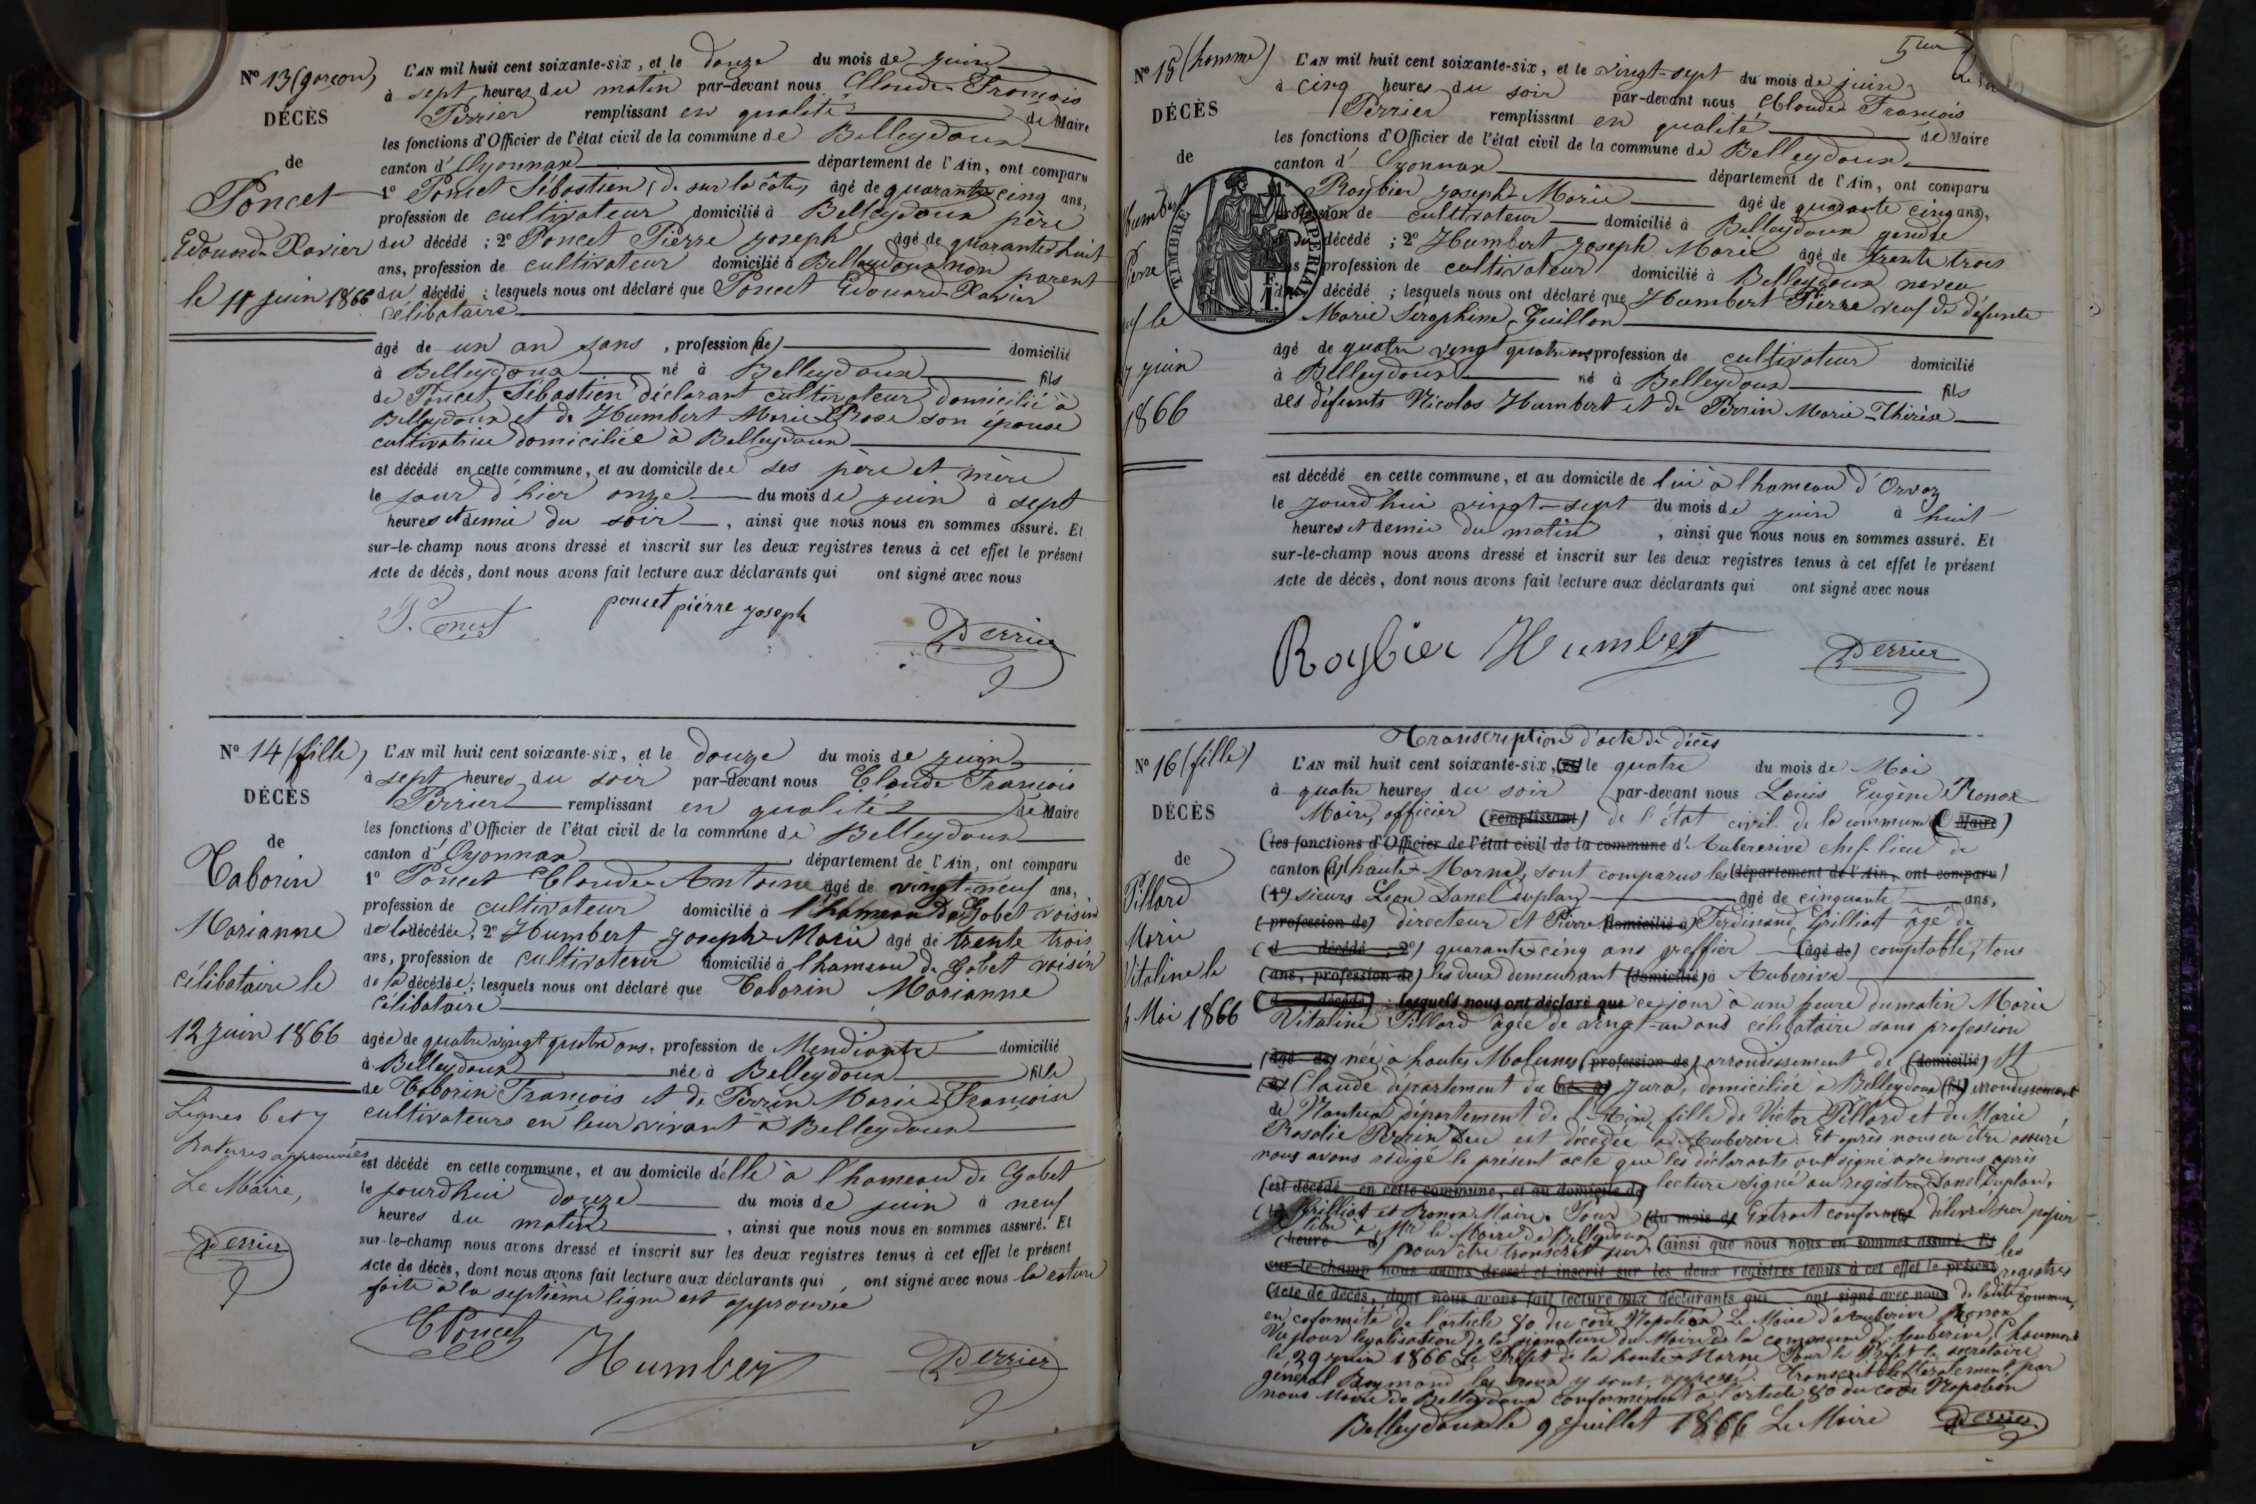 N° 13 (garçon)
DÉCÈS
de
Poncet
Edouard-Xavier
le 11 juin 1866
L'AN mil huit cent soixante-six, et le douze du mois de juin
à sept heures du matin par-devant nous Claude-François
Perrier remplissant en qualité de Maire
les fonctions d'Officier de l'état civil de la commune de Belleydoux
canton d'Oyonnax département de l'Ain, ont comparu
1° Poncet Sébastien, de sur la côte, âgé de quarante cinq ans,
profession de cultivateur domicilié à Belleydoux père
du décédé ; 2° Poncet Pierre Joseph âgé de quarante huit
ans, profession de cultivateur domicilié à Belleydoux non parent
du décédé ; lesquels nous ont déclaré que Poncet Edouard-Xavier
célibataire
âgé de un an sans , profession (de) domicilié
à Belleydoux né à Belleydoux fils
de Poncet Sébastien déclarant cultivateur domicilié à
Belleydoux et de Humbert Marie Rose son épouse
cultivatrice domiciliée à Belleydoux
est décédé en cette commune, et au domicile de ses père et mère
le jour d'hier onze du mois de juin à sept
heures et demie du soir , ainsi que nous nous en sommes assuré. Et
sur-le-champ nous avons dressé et inscrit sur les deux registres tenus à cet effet le présent
Acte de décès, dont nous avons fait lecture aux déclarants qui ont signé avec nous
S. Poncet poncet pierre joseph Perrier
N° 14 (fille)
DÉCÈS
de
Taborin
Marianne
célibataire le
12 juin 1866
Lignes 6 et 7
Ratures approuvées
Le Maire,
Perrier
L'AN mil huit cent soixante-six, et le douze du mois de juin
à sept heures du soir par-devant nous Claude François
Perrier remplissant en qualité de Maire
les fonctions d'Officier de l'état civil de la commune de Belleydoux
canton d'Oyonnax département de l'Ain, ont comparu
1° Poncet Claude-Antoine âgé de vingt-neuf ans,
profession de cultivateur domicilié à l'hameau de Gobet voisin
de la décédée, 2° Humbert Joseph-Marie âgé de trente trois
ans, profession de cultivateur domicilié à l'hameau de Gobet voisin
de la décédée ; lesquels nous ont déclaré que Taborin Marianne
célibataire
âgée de quatre vingt quatre ans, profession de Mendiante domicilié
à Belleydoux née à Belleydoux fille
de Taborin François et de Perrin Marie Françoise
cultivateurs en leur vivant à Belleydoux
est décédé en cette commune, et au domicile d'elle à l'hameau de Gobet
le jourd'hui douze du mois de juin à neuf
heures du matin , ainsi que nous nous en sommes assuré. Et
sur-le-champ nous avons dressé et inscrit sur les deux registres tenus à cet effet le présent
Acte de décès, dont nous avons fait lecture aux déclarants qui , ont signé avec nous la rature
faite à la septième ligne est approuvée
C Poncet Humbert Perrier
N° 15 (homme)
DÉCÈS
de
Humbert
Pierre
veuf le
27 juin
1866
TIMBRE IMPÉRIAL
1 F.
L'AN mil huit cent soixante-six, et le vingt-sept du mois de juin,
à cinq heures du soir par-devant nous Claude François
Perrier remplissant en qualité de Maire
les fonctions d'Officier de l'état civil de la commune de Belleydoux
canton d'Oyonnax département de l'Ain, ont comparu
Roybier Joseph-Marie âgé de quarante cinq ans,
profession de cultivateur domicilié à Belleydoux gendre
du décédé ; 2° Humbert Joseph Marie âgé de trente trois
ans profession de cultivateur domicilié à Belleydoux neveu
du décédé ; lesquels nous ont déclaré que Humbert Pierre veuf de défunte
Marie Séraphine Guillon
âgé de quatre vingt quatre ans profession de cultivateur domicilié
à Belleydoux né à Belleydoux fils
des défunts Nicolas Humbert et de Perrin Marie-Thérèse
est décédé en cette commune, et au domicile de lui à l'hameau d'Orvaz
le jourd'hui vingt-sept du mois de juin à huit
heures et demie du matin , ainsi que nous nous en sommes assuré. Et
sur-le-champ nous avons dressé et inscrit sur les deux registres tenus à cet effet le présent
Acte de décès, dont nous avons fait lecture aux déclarants qui ont signé avec nous
Roybier Humbert Perrier
N° 16 (fille)
DÉCÈS
de
Pillard
Marie
Vitaline le
4 Mai 1866
Transcription d'acte de décès
L'AN mil huit cent soixante-six, (et) le quatre du mois de Mai
à quatre heures du soir par-devant nous Louis Eugène Ronox
Maire, officier (remplissant) de l'état civil de la commune (de Maire)
(les fonctions d'Officier de l'état civil de la commune d'Auberive chef-lieu de
canton (d) haute-Marne, sont comparus les (département de l'Ain, ont comparu)
(1°) sieurs Léon Danel duplan âgé de cinquante ans,
(profession de) directeur et Pierre (domicilié à) Ferdinand Grilliat âgé de
(d décédé ; 2°) quarante-cinq ans greffier (âgé de) comptable, tous
(ans, profession de) les deux demeurant (domicilié) à Auberive
(d décédé) ; lesquels nous ont déclaré que ce jour à une heure du matin Marie
Vitaline Pillard âgée de vingt-un ans célibataire sans profession
(âgé de) née à hautes Molunes (profession de) arrondissement de (domicilié) St
(à) Claude département du (né à) Jura, domiciliée à Belleydoux (fils) arrondissement
de Nantua département de l'Ain, fille de Victor Pillard et de Marie
Rosalie Perrin est décédée à Auberive. Et après nous en être assuré
nous avons rédigé le présent acte que les déclarants ont signé avec nous après
(est décédé en cette commune, et au domicile de lecture signé au registre Danel Duplan,
(le Grilliat et Ronox Maire. Pour (du mois d) Extrait conforme (à) délivré sur papier
libre à Mr le Maire de Belleydoux
(heure d) pour être transcrit sur (ainsi que nous nous en sommes assuré. Et les
sur-le-champ nous avons dressé et inscrit sur les deux registres tenus à cet effet le présent registres
(Acte de décès, dont nous avons fait lecture aux déclarants qui ont signé avec nous de ladite commune,
en conformité de l'article 80 du code Napoléon Le Maire d'Auberive Ronox
Vu pour légalisation de la signature du Maire de la commune d'Auberive, Chaumont
le 29 juin 1866 Le Préfet de la haute-Marne Pour le Préfet le secrétaire
général Raymond les sceaux y sont apposés. Transcrit littéralement, par
nous Maire de Belleydoux conformément à l'article 80 du code Napoléon
Belleydoux le 9 Juillet 1866 Le Maire Perrier